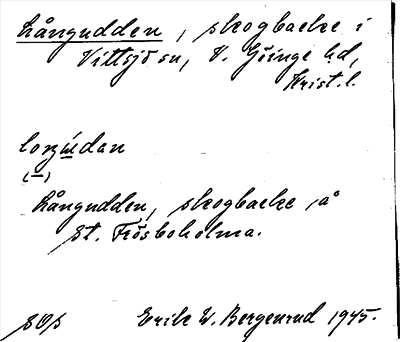 Långudden, skogbacke i
Vittsjö sn, V. Göinge hd,
Krist. l.
(–)
Långudden, skogbacke, å
St. Frösboholma.
Erik W. Bergenrud 1945.